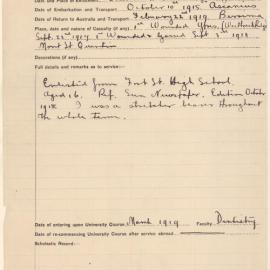 Date of Embarkation and Transport October 10th 1915. Ascanius
Date of Return to Australia and Transport February 22nd 1919. Barunga
Place, date and nature of Casualty (if any) 1st Wounded Ypres,
Sept. 22nd 1917 & Wounded & Gassed Sept. 2nd 1918
Mont St Quentin
Decorations (if any)
Full details and remarks as to service:
Enlisted from Fort St High School,
Aged 16. Ref. Sun Newspaper. Edition October
1915 I was a stretcher bearer throughout
the whole term.
Date of entering upon University Course March 1919 Faculty Dentistry
Date of re-commencing University Course after service abroad
Scholastic Record: